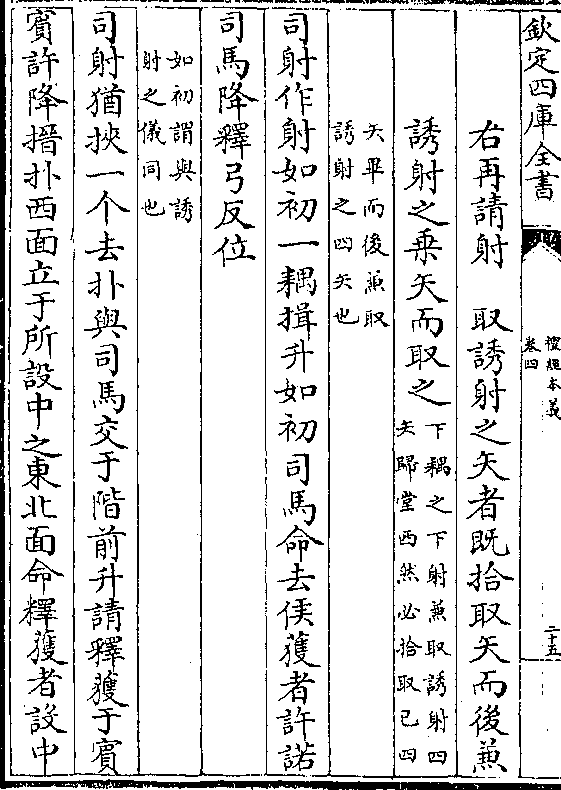 欽定四庫全書
禮經本義
卷四
二十五
右再請射　取誘射之矢者既拾取矢而後兼
誘射之乗矢而取之
下耦之下射兼取誘射四
矢歸堂西然必拾取己四
矢畢而後兼取
誘射之四矢也
司射作射如初一耦揖升如初司馬命去侯獲者許諾
司馬降釋弓反位
如初謂與誘
射之儀同也
司射猶挾一个去扑與司馬交于階前升請釋獲于賓
賓許降搢扑西面立于所設中之東北面命釋獲者設中